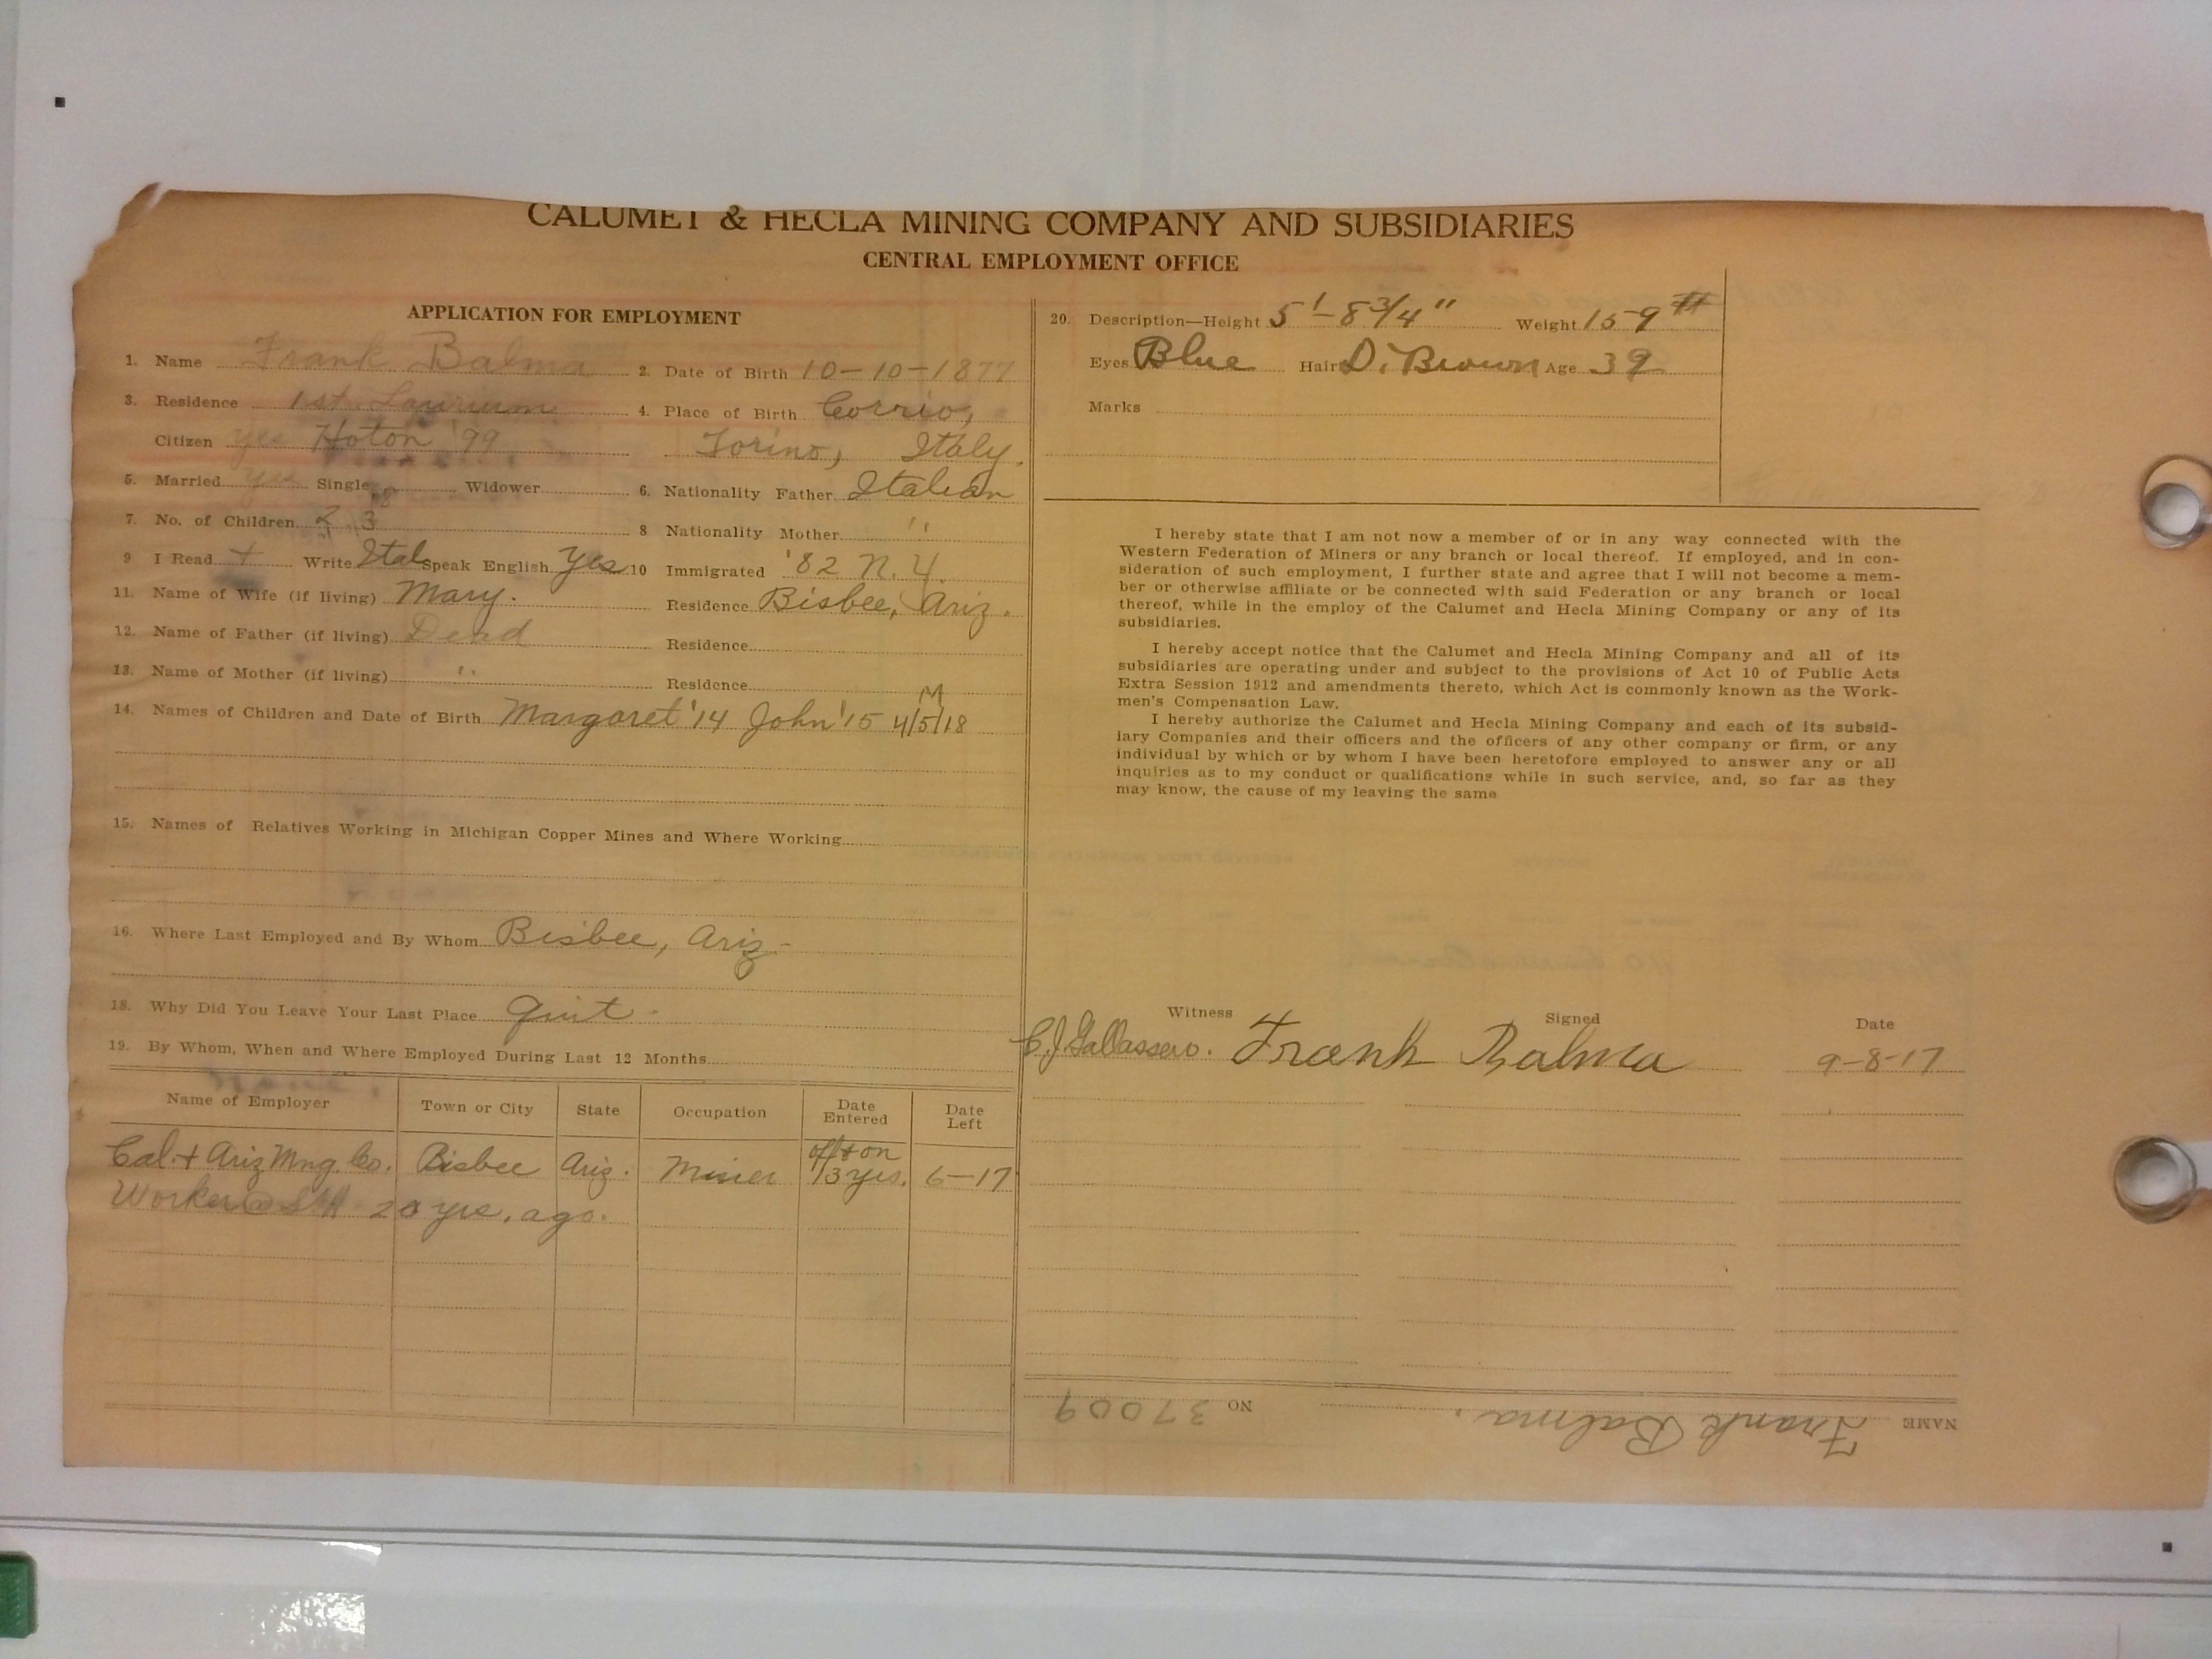 CALUMET & HECLA MINING COMPANY AND SUBSIDIARIES
CENTRAL EMPLOYMENT OFFICE
APPLICATION FOR EMPLOYMENT
1. Name Frank Balma 2. Date of Birth 10-10-1877
3. Residence 1st. Laurium 4. Place of Birth Corrio,
Citizen yes Hoton '99 Torino, Italy.
5. Married yes Single Widower 6. Nationality Father Italian
7. No. of Children 2 3 8 Nationality Mother "
9 I Read + Write Ital Speak English Yes 10 Immigrated '82 N.Y.
11. Name of Wife (if living) Mary. Residence Bisbee, Ariz.
12. Name of Father (if living) Dead Residence
13. Name of Mother (if living) " Residence
14. Names of Children and Date of Birth Margaret '14 John '15 M 4/5/18
15. Names of Relatives Working in Michigan Copper Mines and Where Working
16. Where Last Employed and By Whom Bisbee, Ariz-
18. Why Did You Leave Your Last Place Quit-
19. By Whom, When and Where Employed During Last 12 Months
Name of Employer Town or City State Occupation Date Entered Date Left
Cal. + Ariz Mng. Co. Bisbee Ariz. Miner off + on 13 yrs. 6-17
Worked @ 20 yrs. ago.
20. Description—Height 5'-8 3/4" Weight 159 #
Eyes Blue Hair D. Brown Age 39
Marks
I hereby state that I am not now a member of or in any way connected with the
Western Federation of Miners or any branch or local thereof. If employed, and in con-
sideration of such employment, I further state and agree that I will not become a mem-
ber or otherwise affiliate or be connected with said Federation or any branch or local
thereof, while in the employ of the Calumet and Hecla Mining Company or any of its
subsidiaries.
I hereby accept notice that the Calumet and Hecla Mining Company and all of its
subsidiaries are operating under and subject to the provisions of Act 10 of Public Acts
Extra Session 1912 and amendments thereto, which Act is commonly known as the Work-
men's Compensation Law.
I hereby authorize the Calumet and Hecla Mining Company and each of its subsid-
iary Companies and their officers and the officers of any other company or firm, or any
individual by which or by whom I have been heretofore employed to answer any or all
inquiries as to my conduct or qualifications while in such service, and, so far as they
may know, the cause of my leaving the same
Witness Signed Date
C.J. Gallassero. Frank Balma 9-8-17
NAME Frank Balma. NO 37009